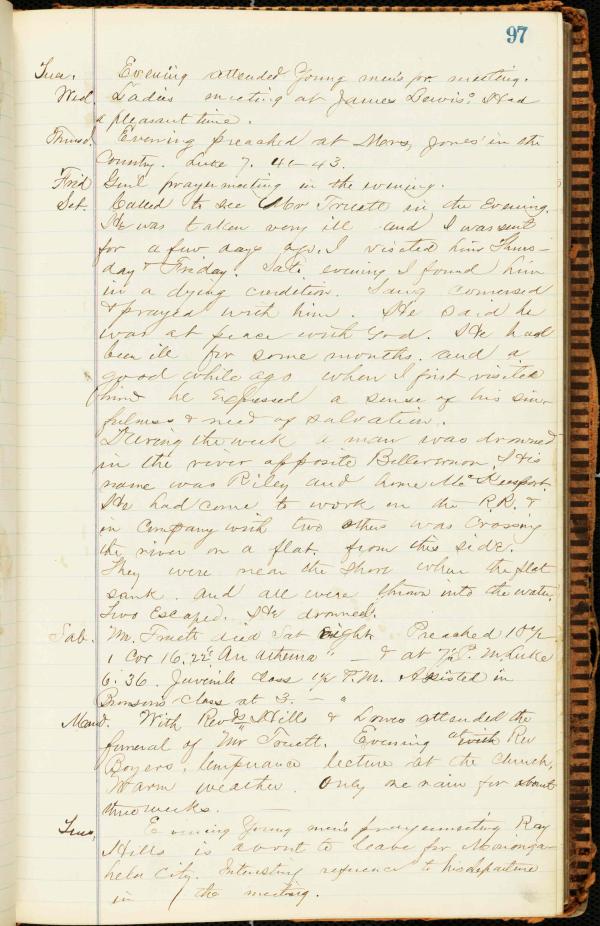 97
Tues. Evening attended Young men's pr. meeting.
Wed. Ladies meeting at James Lewis'. Had
a pleasant time.
Thursd. Evening preached at Mors, Jones' in the
Country. Luke 7. 41-43.
Frid Genl prayermeeting in the evening.
Sat. Called to see Mr Truett in the Evening.
He was taken very ill and I was sent
for a few days ago. I visited him Thurs-
day & Friday. Sat. evening I found him
in a dying condition. Sang conversed
& prayed with him. He said he
was at peace with God. He had
been ill for some months. and a
good while ago when I first visited
him he expressed a sense of his sin-
fulness & need of salvation.
During the week a man was drowned
in the river opposite Bellevernon. His
name was Riley and home McKeesport.
He had come to work on the R.R. &
in Company with two others was crossing
the river on a flat. from this side.
They were near the shore when the flat
sank. and all were thrown into the water,
Two Escaped. He drowned.
Sab. Mr. Truett died Sat night. Preached 10½
1 Cor 16.22 "An athema" — & at 7½ P.M. Luke
6.36. Juvenile Class 1½ P.M. Assisted in
Bronson's class at 3. — "
Mond. With Revds Hills & Jones attended the
funeral of Mr Truett. Evening at Rev
Boyers. temperance lecture at the church.
Warm weather. Only one rain for about
three weeks.
Tues, Evening Young men's prayermeeting Ray
Hills is about to leave for Mononga-
hela City. Interesting reference to his departure
in the meeting.